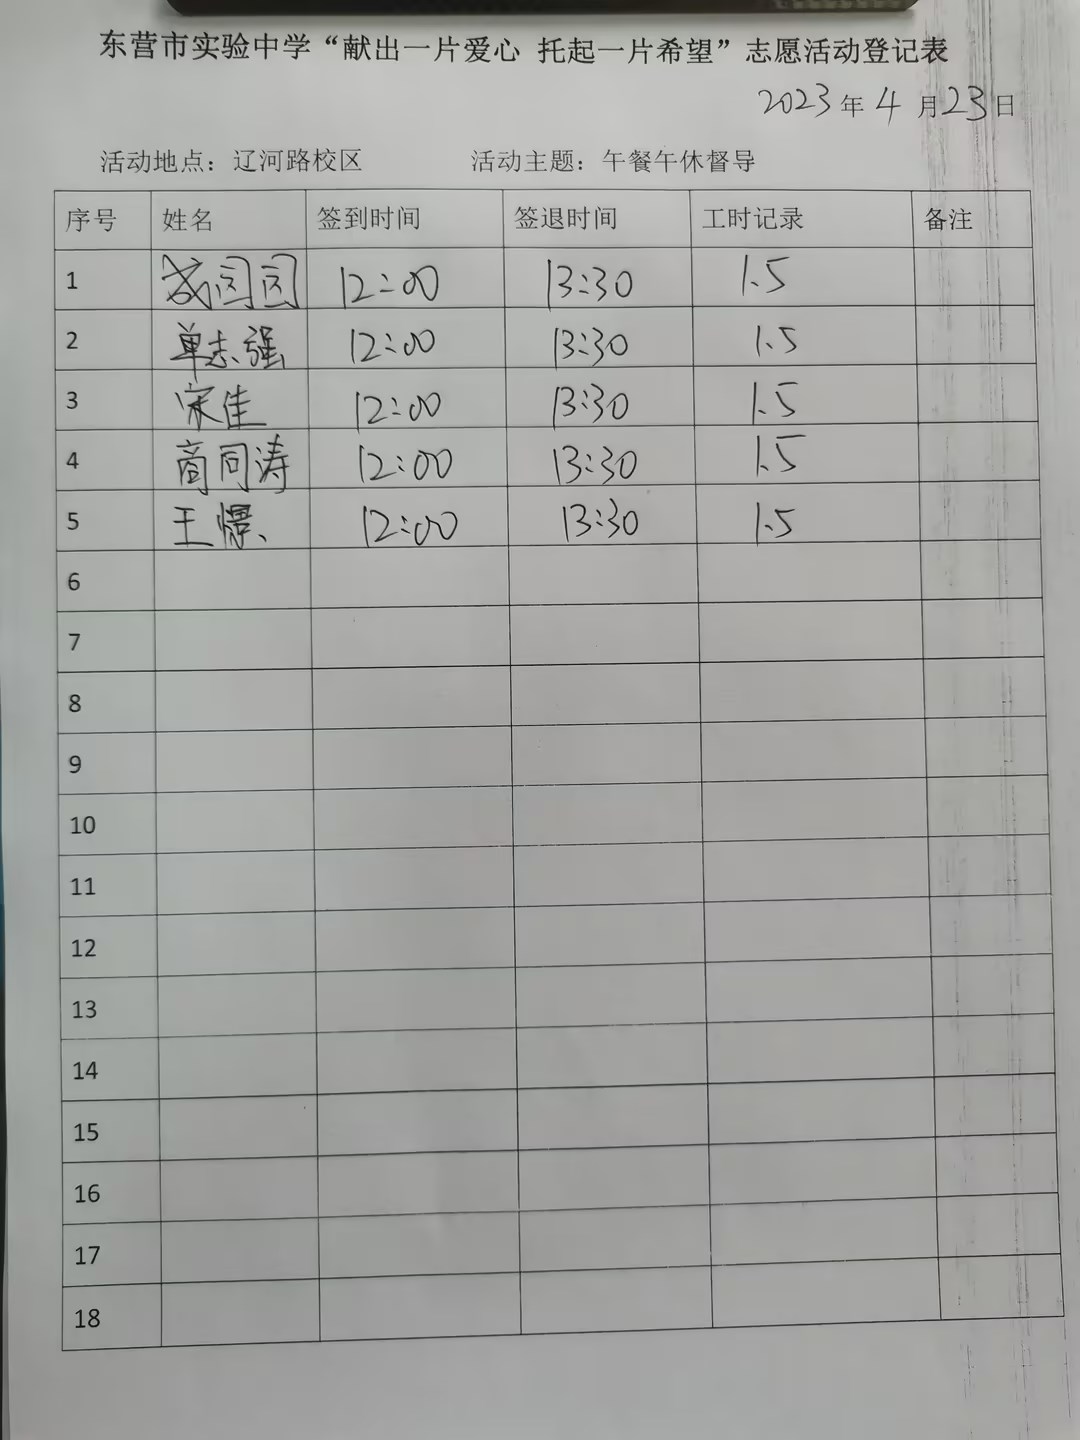 东营市实验中学“献出一片爱心 托起一片希望”志愿活动登记表
2023年4月23日
活动地点：辽河路校区 活动主题：午餐午休督导
序号 姓名 签到时间 签退时间 工时记录 备注
1 12:00 13:30 1.5
2 单志强 12:00 13:30 1.5
3 宋佳 12:00 13:30 1.5
4 商同涛 12:00 13:30 1.5
5 王憬 12:00 13:30 1.5
6
7
8
9
10
11
12
13
14
15
16
17
18